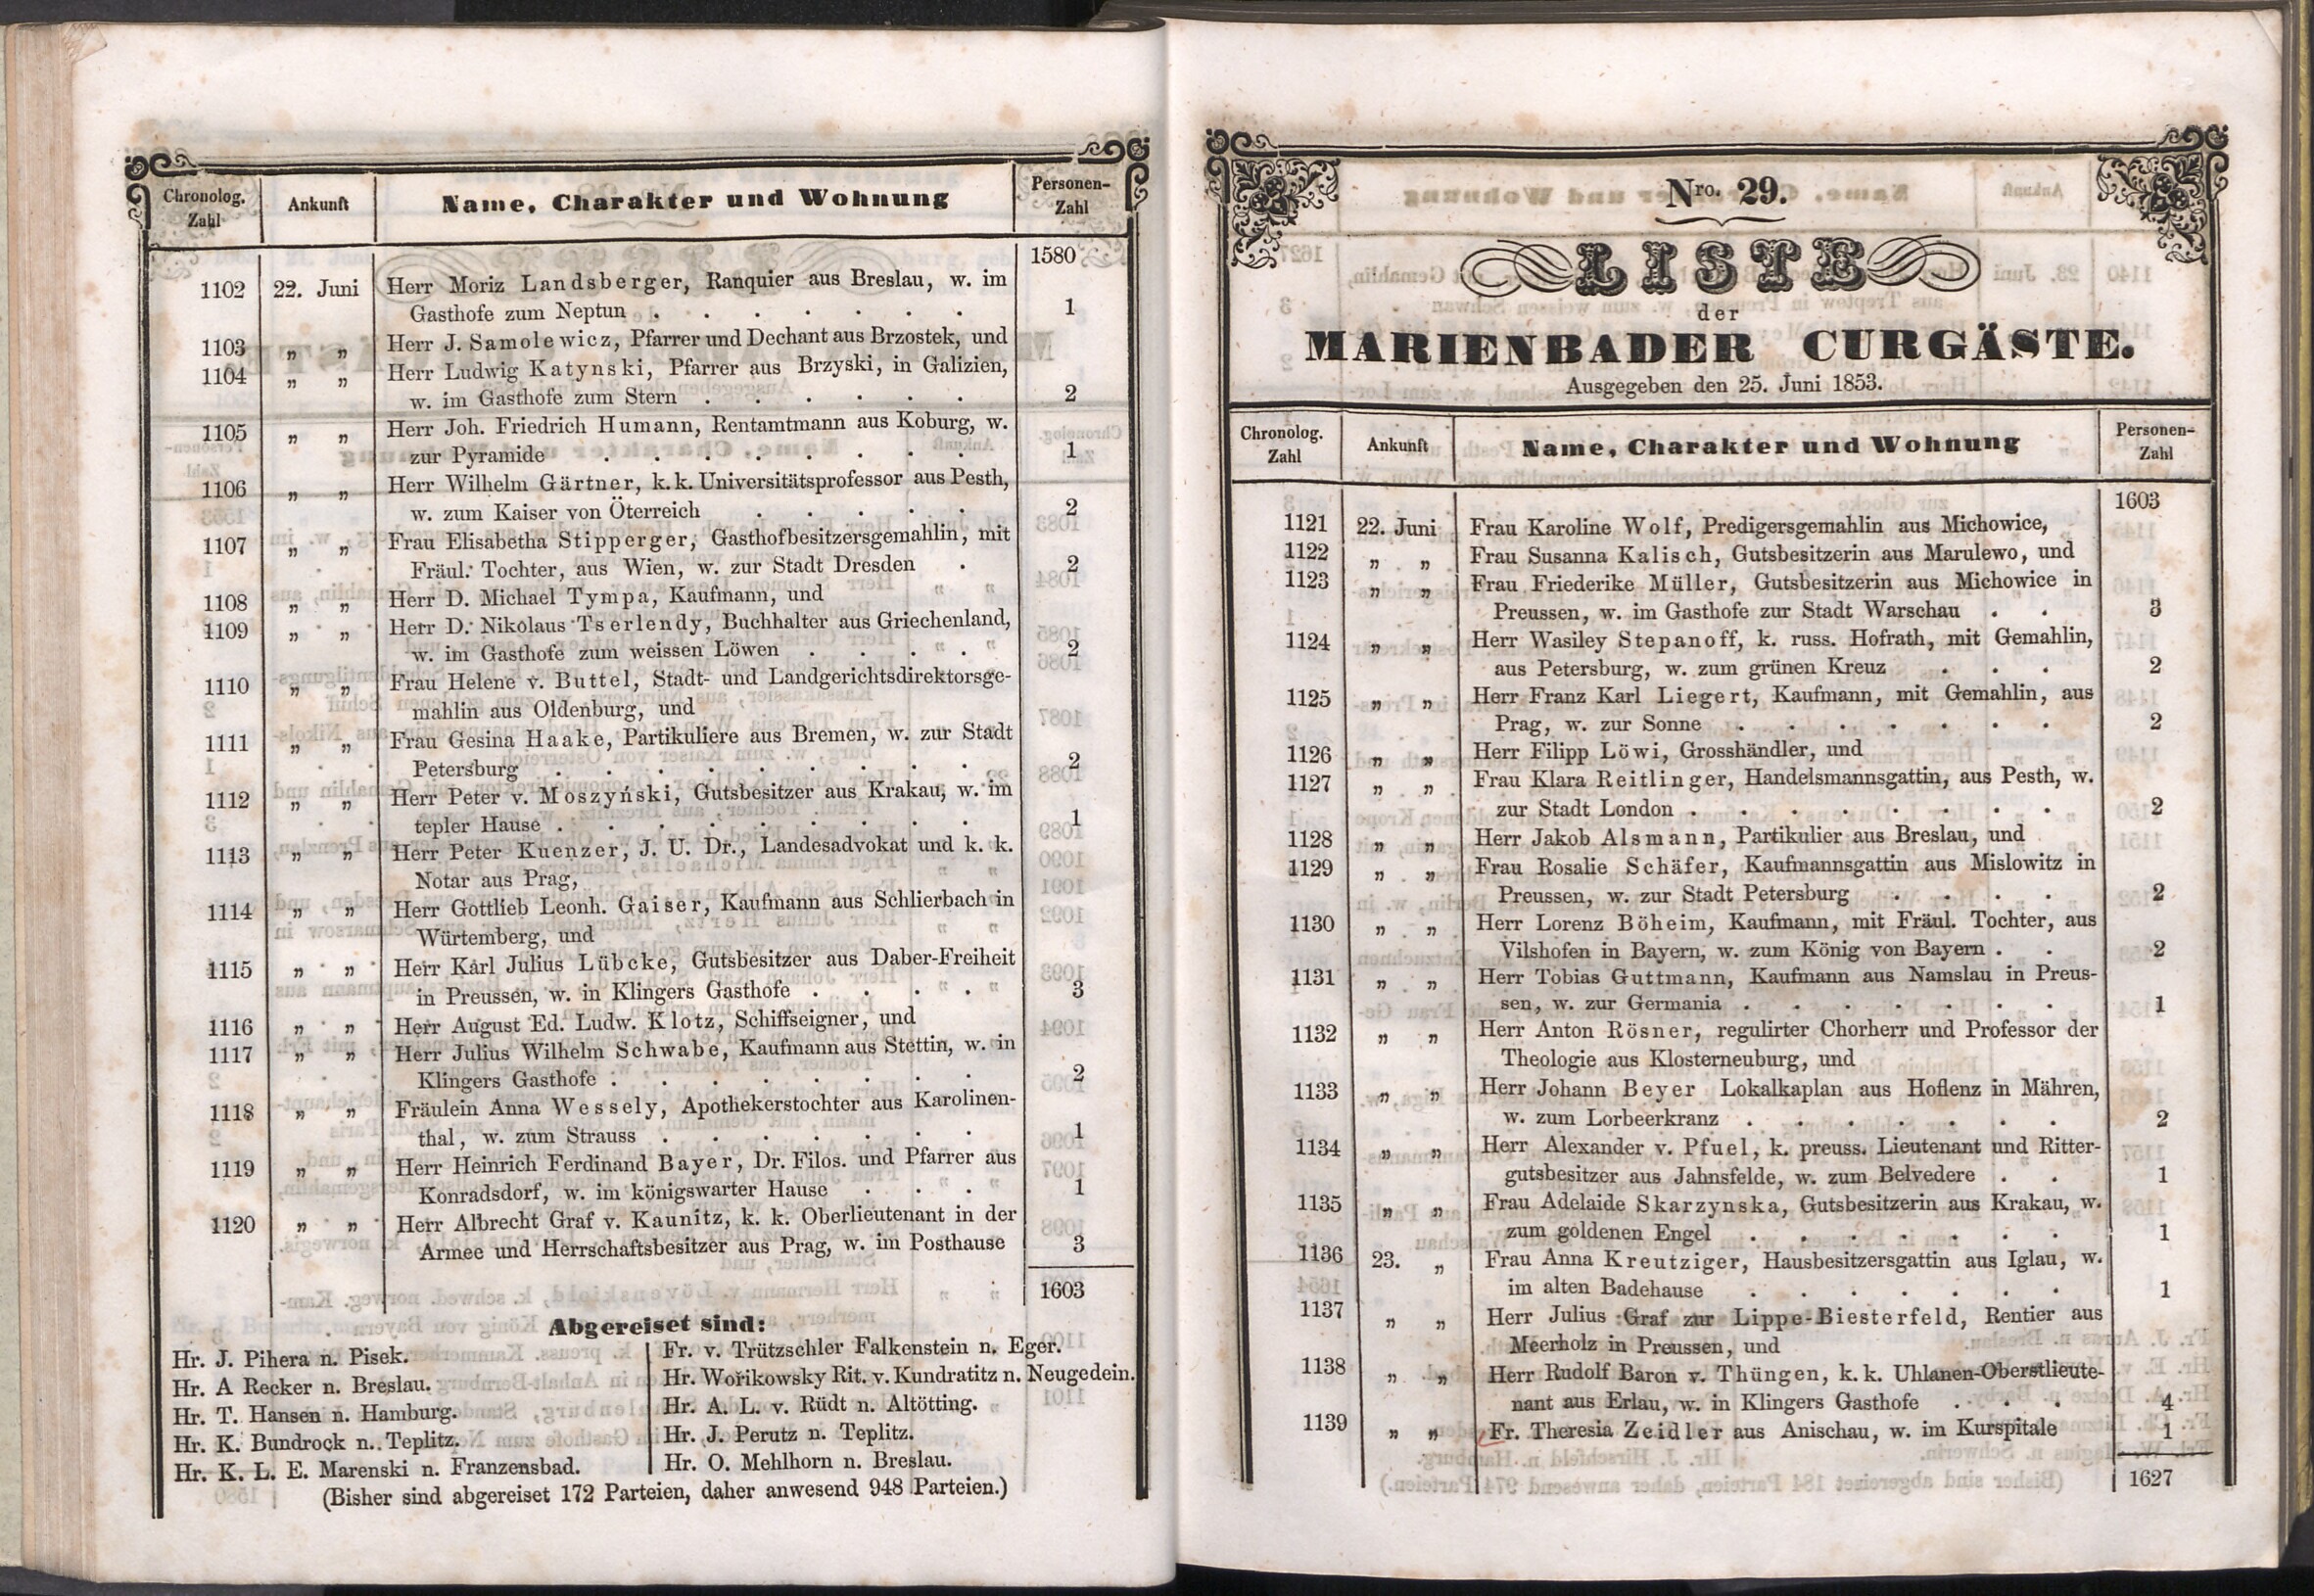 Chronolog. Zahl | Ankunft | Name, Charakter und Wohnung | Personen-Zahl
1580
1102 22. Juni Herr Moriz Landsberger, Ranquier aus Breslau, w. im
Gasthofe zum Neptun . . . . . . . 1
1103 „ „ Herr J. Samolewicz, Pfarrer und Dechant aus Brzostek, und
1104 „ „ Herr Ludwig Katynski, Pfarrer aus Brzyski, in Galizien,
w. im Gasthofe zum Stern . . . . . . 2
1105 „ „ Herr Joh. Friedrich Humann, Rentamtmann aus Koburg, w.
zur Pyramide . . . . . . . . 1
1106 „ „ Herr Wilhelm Gärtner, k. k. Universitätsprofessor aus Pesth,
w. zum Kaiser von Österreich . . . . . 2
1107 „ „ Frau Elisabetha Stipperger, Gasthofbesitzersgemahlin, mit
Fräul. Tochter, aus Wien, w. zur Stadt Dresden . 2
1108 „ „ Herr D. Michael Tympa, Kaufmann, und
1109 „ „ Herr D. Nikolaus Tserlendy, Buchhalter aus Griechenland,
w. im Gasthofe zum weissen Löwen . . . . 2
1110 „ „ Frau Helene v. Buttel, Stadt- und Landgerichtsdirektorsge-
mahlin aus Oldenburg, und
1111 „ „ Frau Gesina Haake, Partikuliere aus Bremen, w. zur Stadt
Petersburg . . . . . . . . . 2
1112 „ „ Herr Peter v. Moszyński, Gutsbesitzer aus Krakau, w. im
tepler Hause . . . . . . . . . 1
1113 „ „ Herr Peter Kuenzer, J. U. Dr., Landesadvokat und k. k.
Notar aus Prag,
1114 „ „ Herr Gottlieb Leonh. Gaiser, Kaufmann aus Schlierbach in
Würtemberg, und
1115 „ „ Herr Karl Julius Lübcke, Gutsbesitzer aus Daber-Freiheit
in Preussen, w. in Klingers Gasthofe . . . . 3
1116 „ „ Herr August Ed. Ludw. Klotz, Schiffseigner, und
1117 „ „ Herr Julius Wilhelm Schwabe, Kaufmann aus Stettin, w. in
Klingers Gasthofe . . . . . . . . 2
1118 „ „ Fräulein Anna Wessely, Apothekerstochter aus Karolinen-
thal, w. zum Strauss . . . . . . . 1
1119 „ „ Herr Heinrich Ferdinand Bayer, Dr. Filos. und Pfarrer aus
Konradsdorf, w. im königswarter Hause . . . 1
1120 „ „ Herr Albrecht Graf v. Kaunitz, k. k. Oberlieutenant in der
Armee und Herrschaftsbesitzer aus Prag, w. im Posthause 3
1603
Abgereiset sind:
Hr. J. Pihera n. Pisek.
Hr. A Recker n. Breslau.
Hr. T. Hansen n. Hamburg.
Hr. K. Bundrock n. Teplitz.
Hr. K. L. E. Marenski n. Franzensbad.
Fr. v. Trützschler Falkenstein n. Eger.
Hr. Wořikowsky Rit. v. Kundratitz n. Neugedein.
Hr. A. L. v. Rüdt n. Altötting.
Hr. J. Perutz n. Teplitz.
Hr. O. Mehlhorn n. Breslau.
(Bisher sind abgereiset 172 Parteien, daher anwesend 948 Parteien.)
Nro. 29.
LISTE
der
MARIENBADER CURGÄSTE.
Ausgegeben den 25. Juni 1853.
Chronolog. Zahl | Ankunft | Name, Charakter und Wohnung | Personen-Zahl
1603
1121 22. Juni Frau Karoline Wolf, Predigersgemahlin aus Michowice,
1122 „ „ Frau Susanna Kalisch, Gutsbesitzerin aus Marulewo, und
1123 „ „ Frau Friederike Müller, Gutsbesitzerin aus Michowice in
Preussen, w. im Gasthofe zur Stadt Warschau . . 3
1124 „ „ Herr Wasiley Stepanoff, k. russ. Hofrath, mit Gemahlin,
aus Petersburg, w. zum grünen Kreuz . . . 2
1125 „ „ Herr Franz Karl Liegert, Kaufmann, mit Gemahlin, aus
Prag, w. zur Sonne . . . . . . . 2
1126 „ „ Herr Filipp Löwi, Grosshändler, und
1127 „ „ Frau Klara Reitlinger, Handelsmannsgattin, aus Pesth, w.
zur Stadt London . . . . . . . . 2
1128 „ „ Herr Jakob Alsmann, Partikulier aus Breslau, und
1129 „ „ Frau Rosalie Schäfer, Kaufmannsgattin aus Mislowitz in
Preussen, w. zur Stadt Petersburg . . . . 2
1130 „ „ Herr Lorenz Böheim, Kaufmann, mit Fräul. Tochter, aus
Vilshofen in Bayern, w. zum König von Bayern . . 2
1131 „ „ Herr Tobias Guttmann, Kaufmann aus Namslau in Preus-
sen, w. zur Germania . . . . . . . 1
1132 „ „ Herr Anton Rösner, regulirter Chorherr und Professor der
Theologie aus Klosterneuburg, und
1133 „ „ Herr Johann Beyer Lokalkaplan aus Hoflenz in Mähren,
w. zum Lorbeerkranz . . . . . . . 2
1134 „ „ Herr Alexander v. Pfuel, k. preuss. Lieutenant und Ritter-
gutsbesitzer aus Jahnsfelde, w. zum Belvedere . . 1
1135 „ „ Frau Adelaide Skarzynska, Gutsbesitzerin aus Krakau, w.
zum goldenen Engel . . . . . . . 1
1136 23. „ Frau Anna Kreutziger, Hausbesitzersgattin aus Iglau, w.
im alten Badehause . . . . . . . 1
1137 „ „ Herr Julius Graf zur Lippe-Biesterfeld, Rentier aus
Meerholz in Preussen, und
1138 „ „ Herr Rudolf Baron v. Thüngen, k. k. Uhlanen-Oberstlieute-
nant aus Erlau, w. in Klingers Gasthofe . . . 4
1139 „ „ Fr. Theresia Zeidler aus Anischau, w. im Kurspitale 1
1627